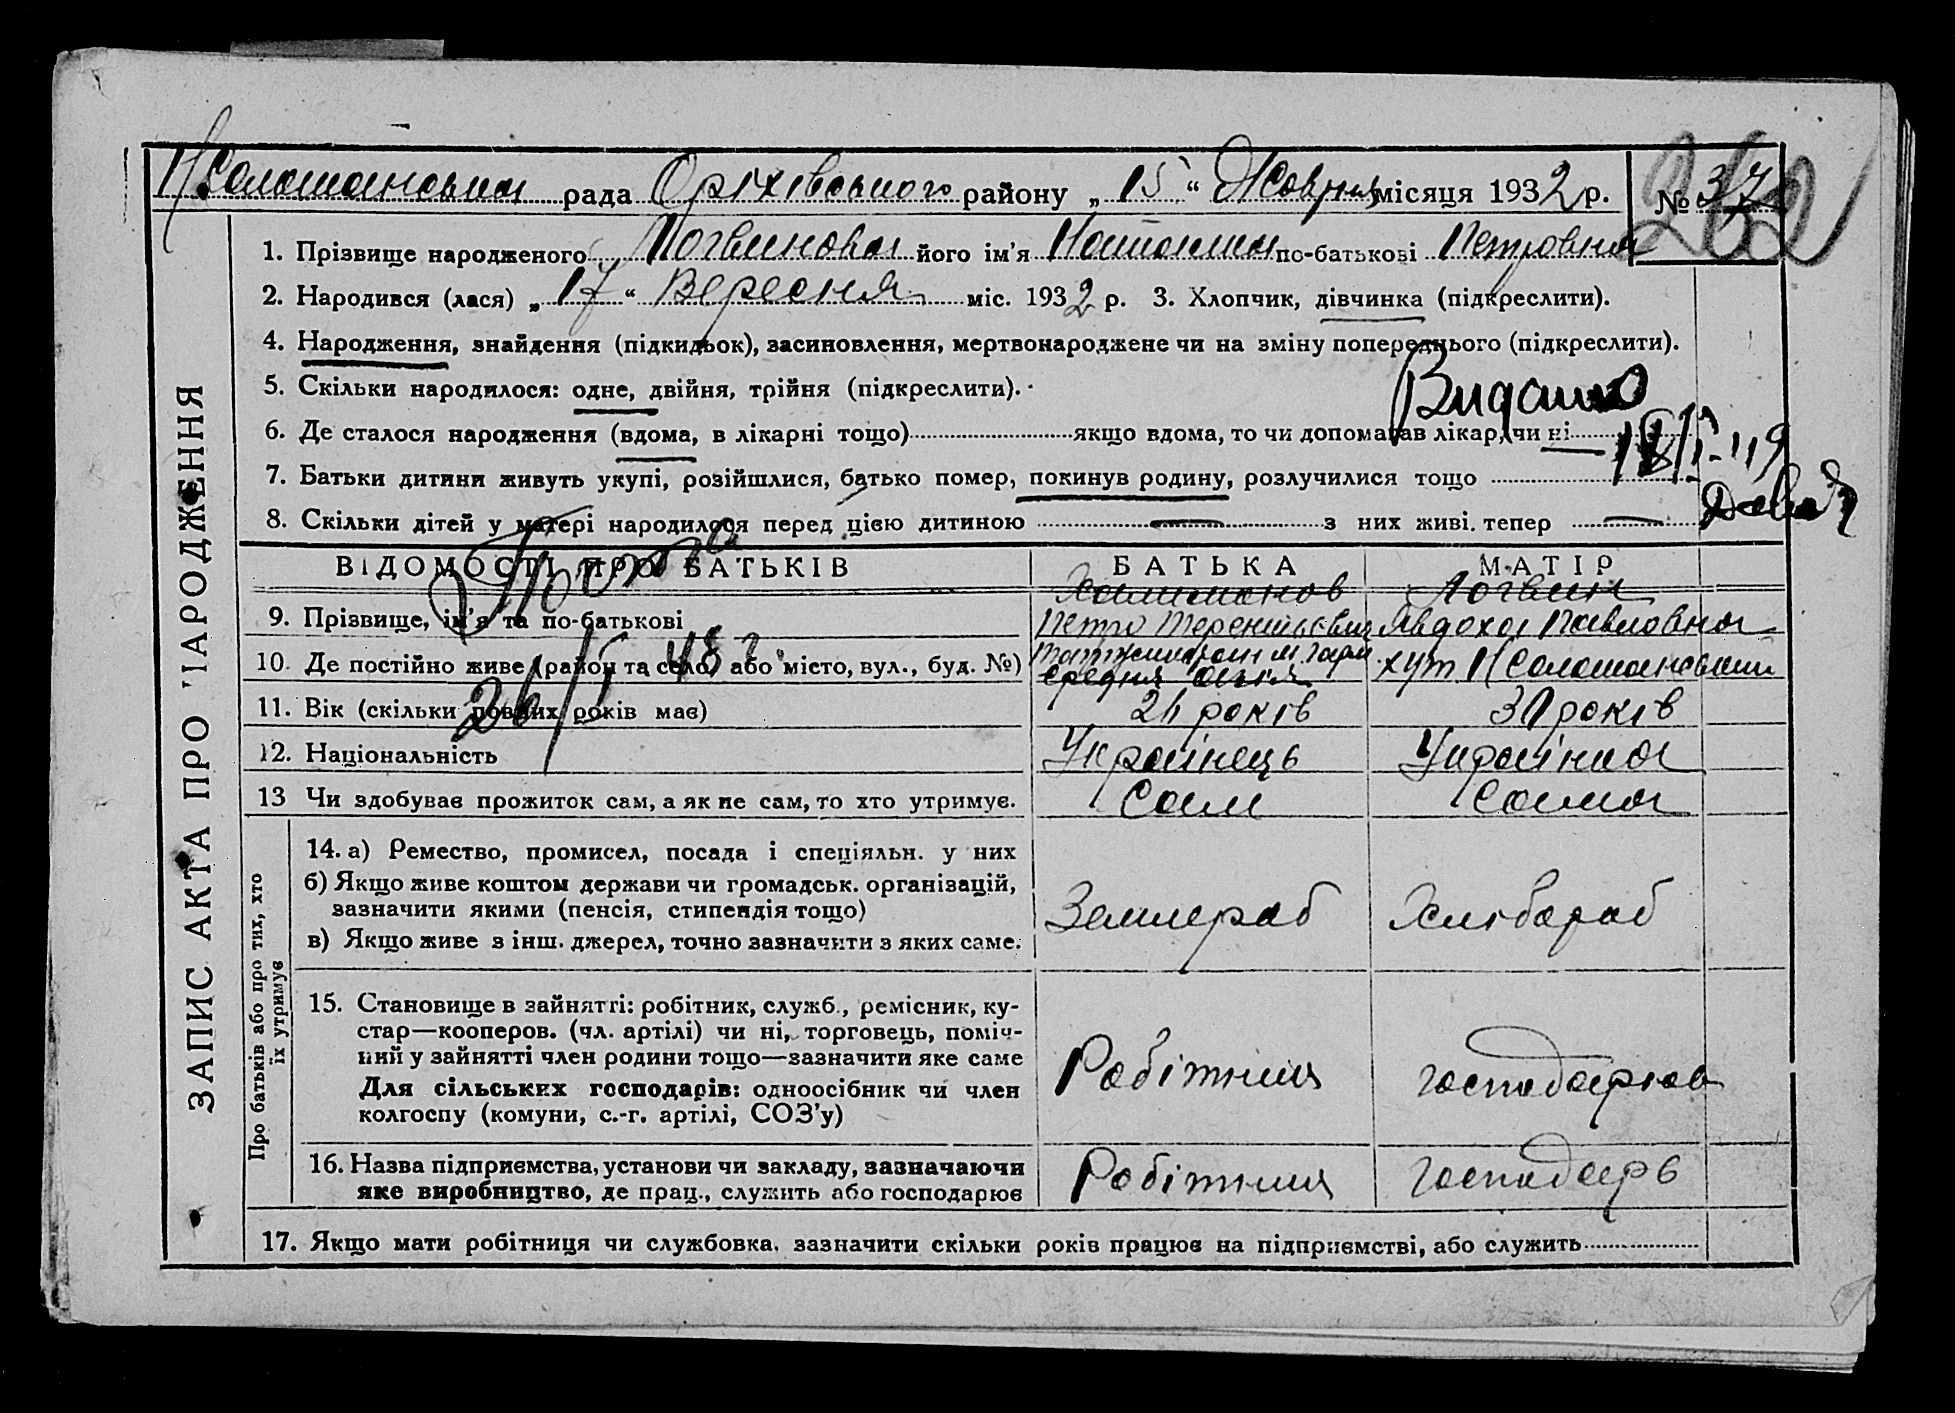 Н Соломанська рада Оріхівського району „15“ Жовтня місяця 1932 р. № 37
262
1. Прізвище народженого Логвинова його ім'я Наталия по-батькові Петровна
2. Народився (лася) „17“ Вересня міс. 1932 р. 3. Хлопчик, дівчинка (підкреслити).
4. Народження, знайдення (підкидьок), засиновлення, мертвонароджене чи на зміну попереднього (підкреслити).
5. Скільки народилося: одне, двійня, трійня (підкреслити).
Видано
6. Де сталося народження (вдома, в лікарні тощо) якщо вдома, то чи допомагав лікар, чи ні
7. Батьки дитини живуть укупі, розійшлися, батько помер, покинув родину, розлучилися тощо
8. Скільки дітей у матері народилося перед цією дитиною — з них живі тепер —
ВІДОМОСТІ ПРО БАТЬКІВ БАТЬКА МАТІР
9. Прізвище, ім'я та по-батькові Халиманов Петро Терентьевич Логвин Явдоха Павловна
10. Де постійно живе (район та село, або місто, вул., буд. №) Середня Азія хут. Н Соломанський
26/I 48 г.
11. Вік (скільки повних років має) 24 років 31 років
12. Національність Українець Українка
13 Чи здобуває прожиток сам, а як не сам, то хто утримує. Сам Сама
14. а) Ремество, промисел, посада і спеціяльн. у них
б) Якщо живе коштом держави чи громадськ. організацій,
зазначити якими (пенсія, стипендія тощо) Землероб Хлібароб
в) Якщо живе з інш. джерел, точно зазначити з яких саме.
15. Становище в зайнятті: робітник, служб., ремісник, ку-
стар—кооперов. (чл. артілі) чи ні, торговець, поміч-
ний у зайнятті член родини тощо—зазначити яке саме
Для сільських господарів: одноосібник чи член
колгоспу (комуни, с.-г. артілі, СОЗ'у)
Робітник господарює
16. Назва підприємства, установи чи закладу, зазначаючи
яке виробництво, де прац., служить або господарює
Робітник господарь
17. Якщо мати робітниця чи службовка, зазначити скільки років працює на підприємстві, або служить
ЗАПИС АКТА ПРО НАРОДЖЕННЯ
Про батьків або про тих, хто
їх утримує